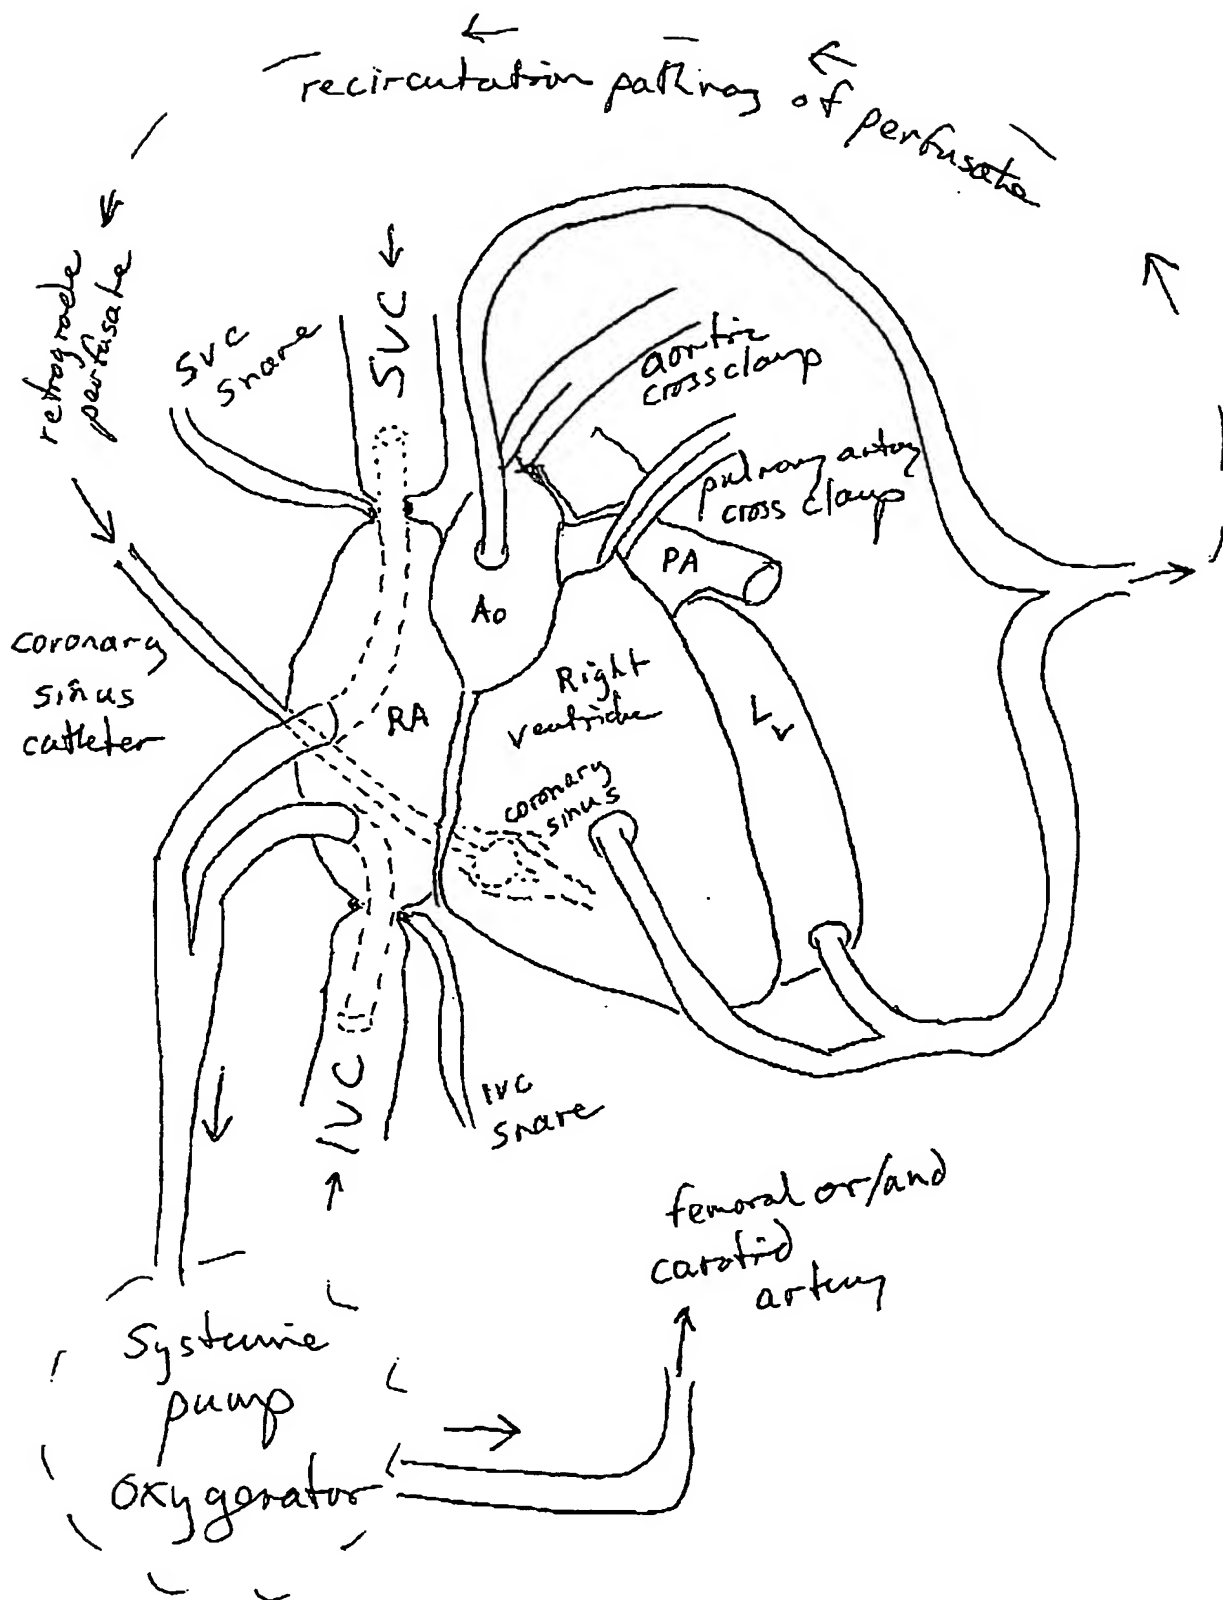 recirculation pathway of perfusate
retrograde
perfusate
SVC
snare
SVC
aortic
crossclamp
pulmonary artery
cross clamp
PA
Ao
coronary
sinus
catheter
RA
Right
ventricle
Lv
coronary
sinus
IVC
IVC
snare
femoral or/and
carotid
artery
Systemic
pump
oxygenator